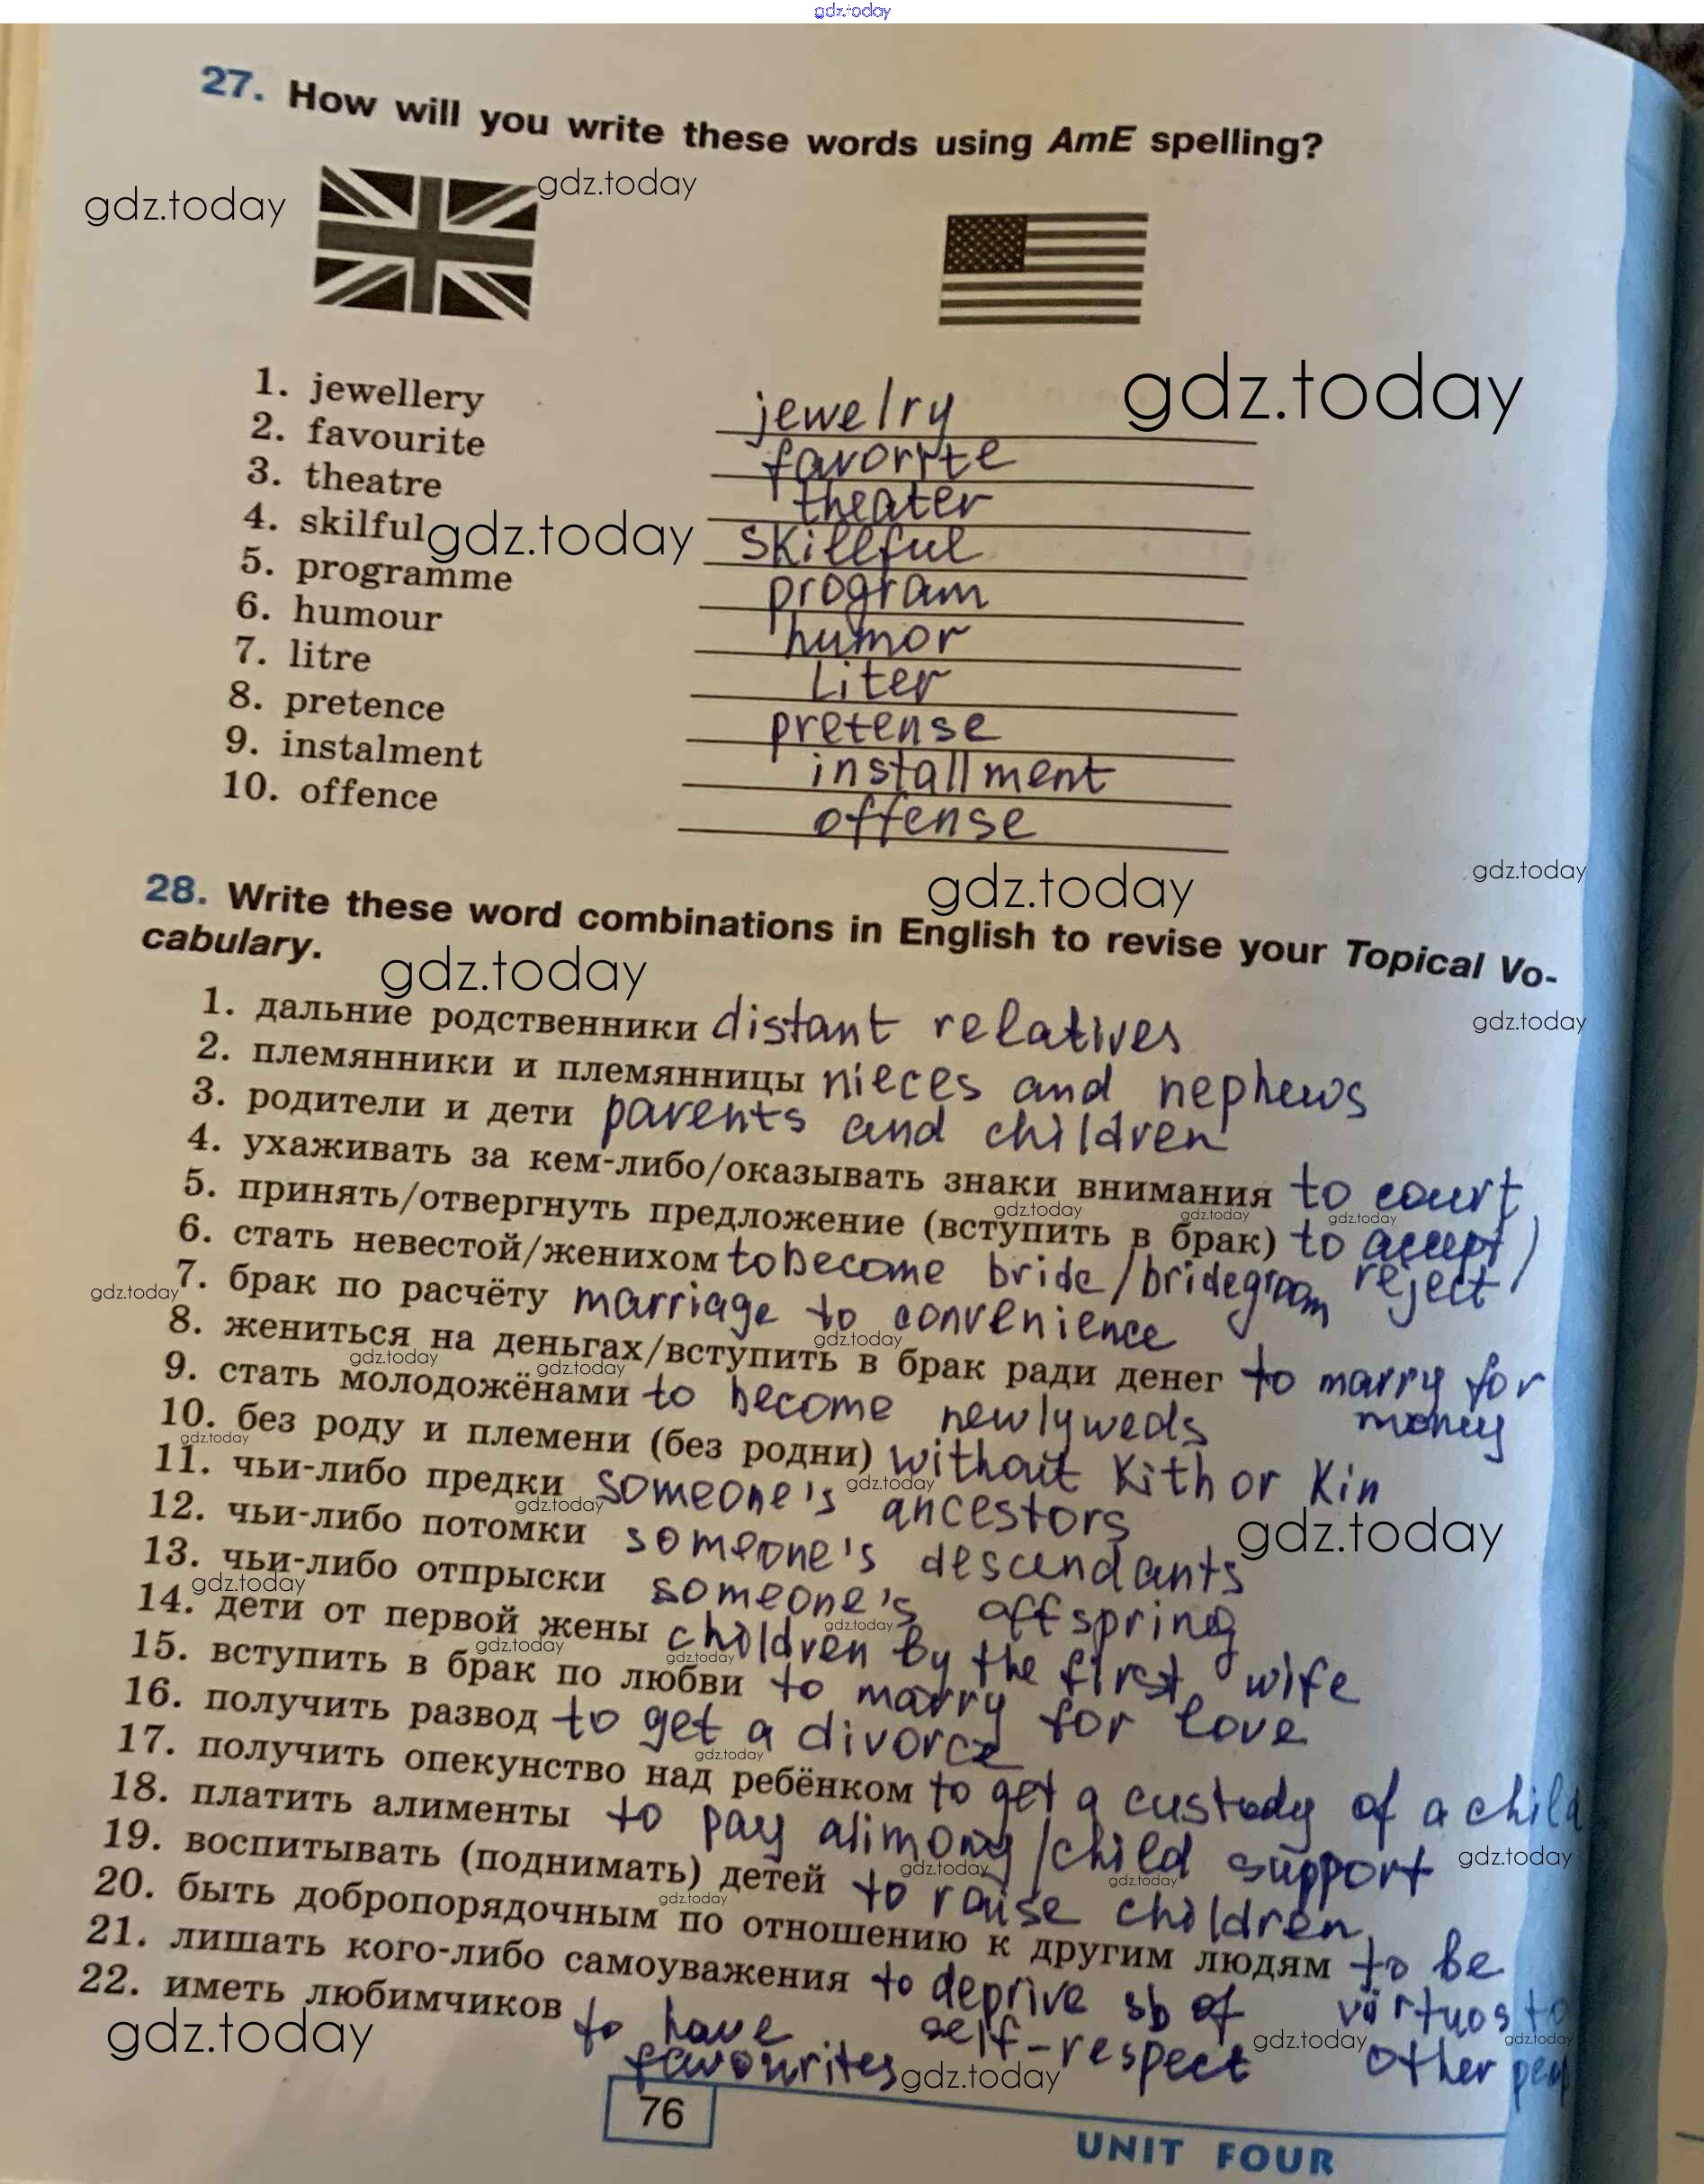 gdz.today
27. How will you write these words using AmE spelling?
gdz.today
gdz.today
gdz.today
1. jewellery jewelry
2. favourite favorite
3. theatre theater
4. skilful skillful
gdz.today
5. programme program
6. humour humor
7. litre Liter
8. pretence pretense
9. instalment installment
10. offence offense
gdz.today
gdz.today
28. Write these word combinations in English to revise your Topical Vo-
cabulary.
gdz.today
gdz.today
1. дальние родственники distant relatives
2. племянники и племянницы nieces and nephews
3. родители и дети parents and children
4. ухаживать за кем-либо/оказывать знаки внимания to court
gdz.today gdz.today gdz.today
5. принять/отвергнуть предложение (вступить в брак) to accept/
reject
6. стать невестой/женихом to become bride/bridegroom
gdz.today
7. брак по расчёту marriage to convenience
gdz.today
8. жениться на деньгах/вступить в брак ради денег to marry for
money
gdz.today gdz.today
9. стать молодожёнами to become newlyweds
10. без роду и племени (без родни) without Kith or Kin
gdz.today
gdz.today
11. чьи-либо предки someone's ancestors
gdz.today
12. чьи-либо потомки someone's descendants
gdz.today
13. чьи-либо отпрыски someone's offspring
gdz.today
14. дети от первой жены children by the first wife
gdz.today
gdz.today gdz.today
15. вступить в брак по любви to marry for love
16. получить развод to get a divorce
gdz.today
17. получить опекунство над ребёнком to get a custody of a child
18. платить алименты to pay alimony/child support
gdz.today
gdz.today gdz.today
19. воспитывать (поднимать) детей to raise children
gdz.today
20. быть добропорядочным по отношению к другим людям to be
virtuos to
other
21. лишать кого-либо самоуважения to deprive sb of
self-respect
22. иметь любимчиков to have
favourites
gdz.today
gdz.today gdz.today
gdz.today
76
UNIT FOUR